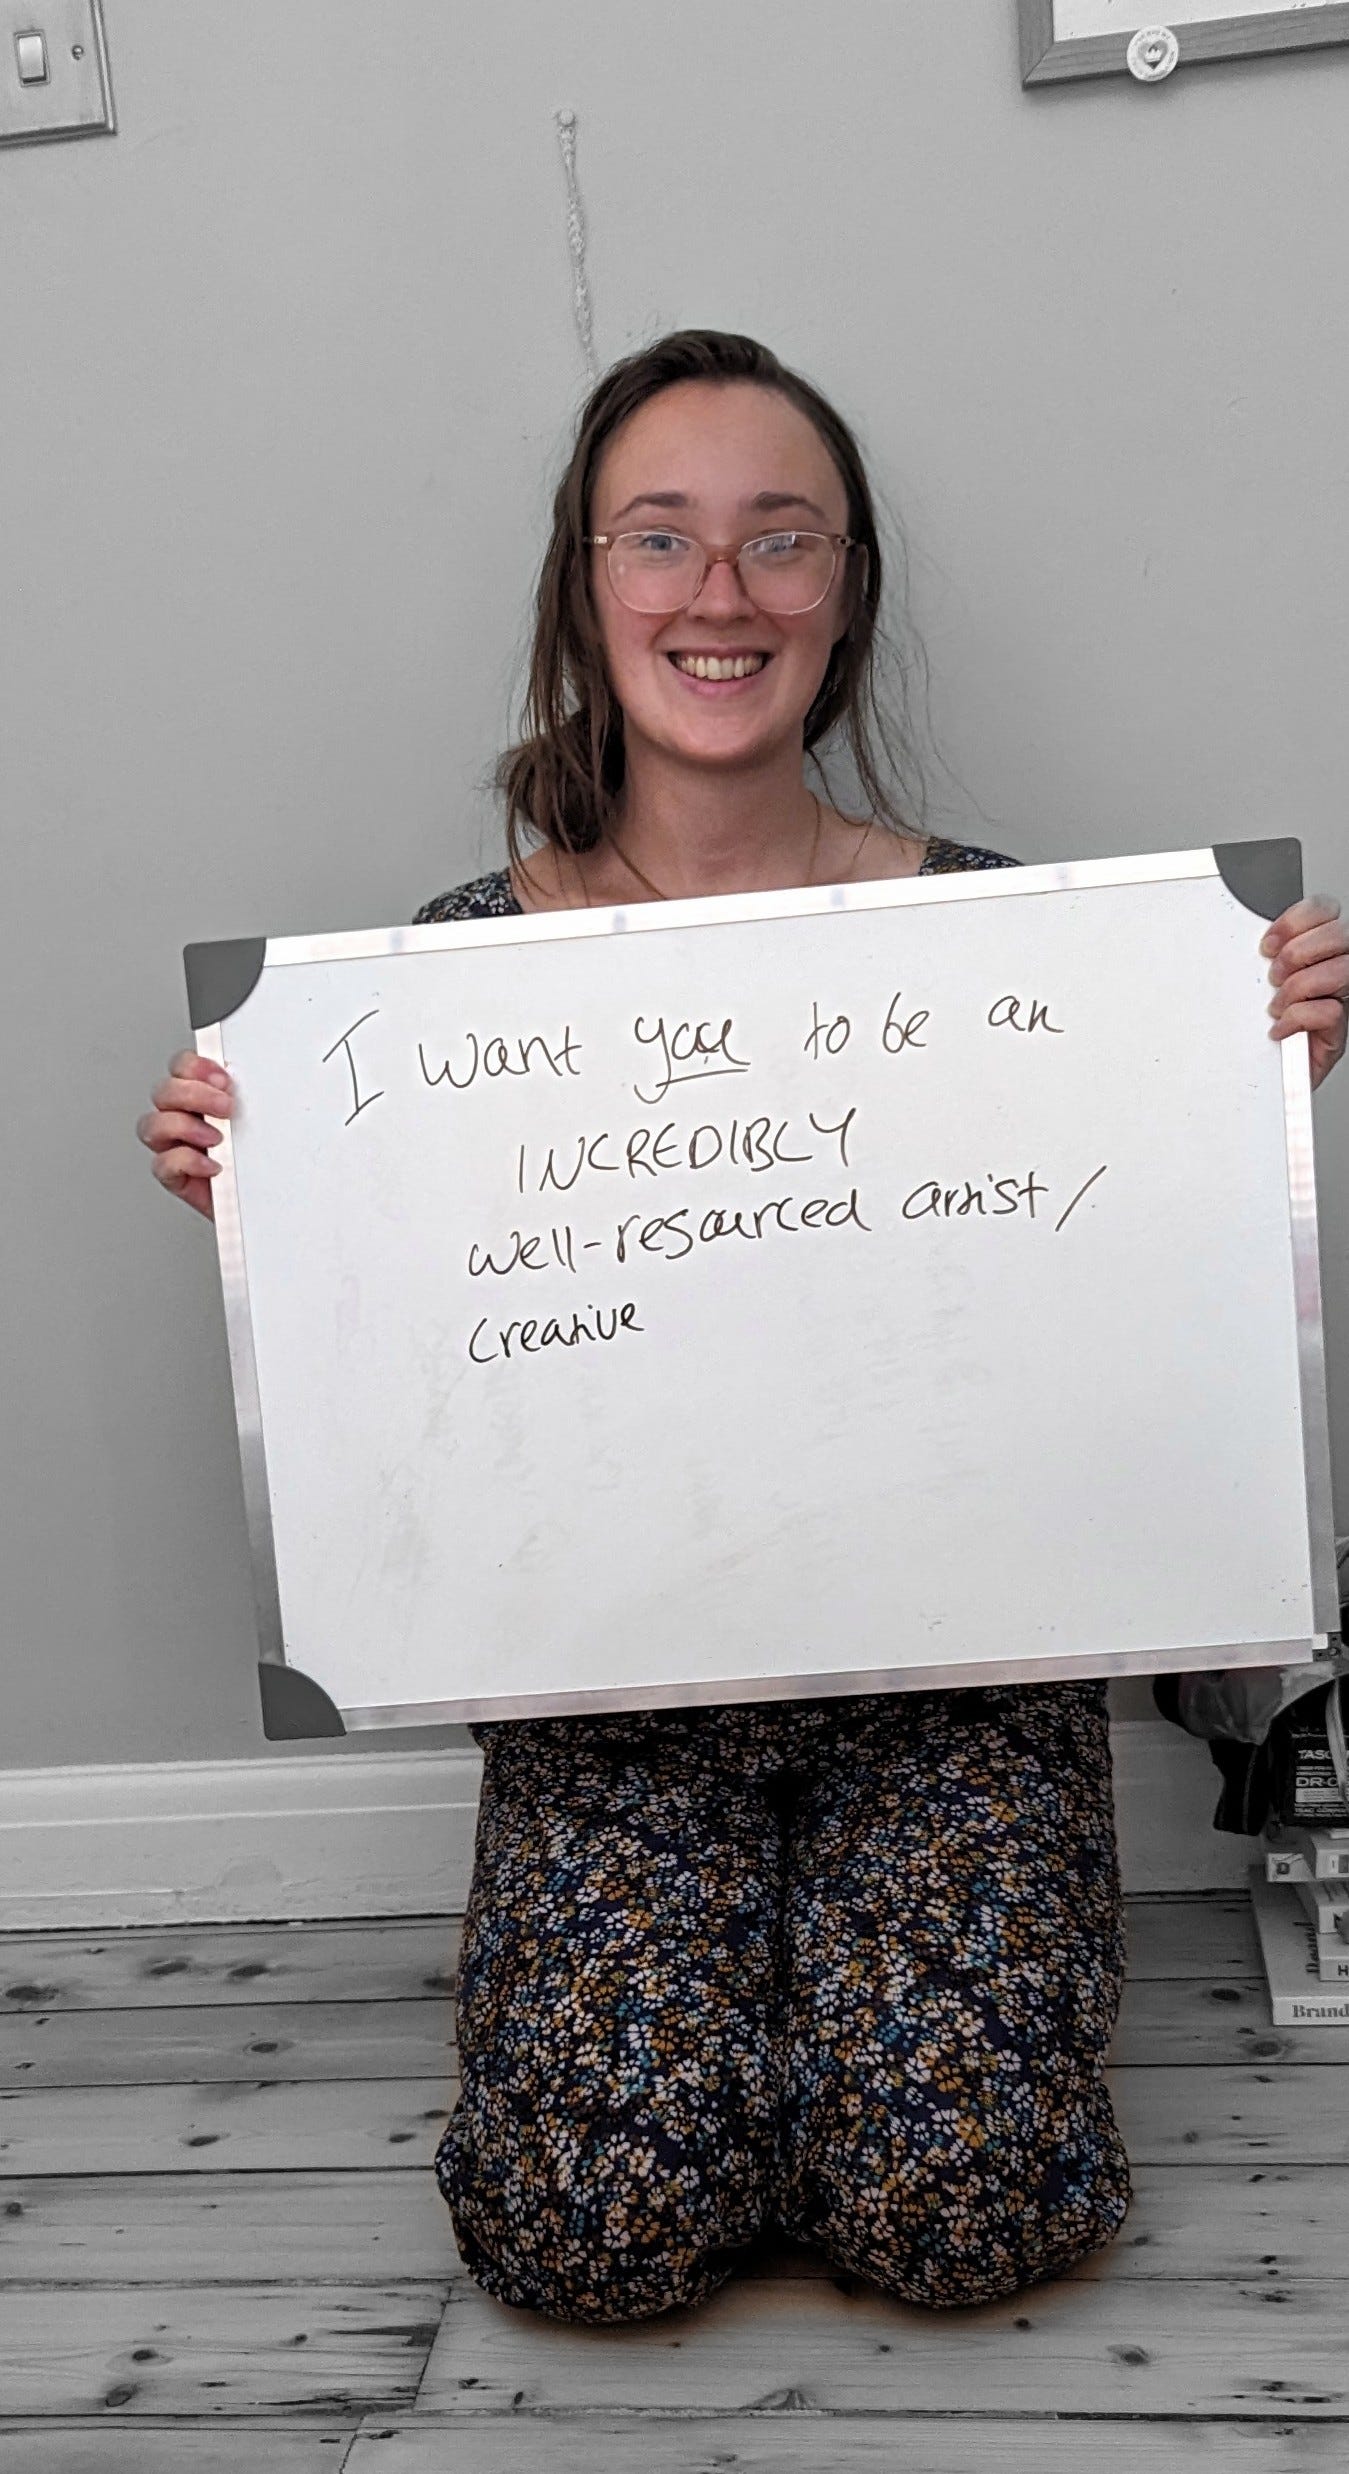 I want you to be an
INCREDIBLY
well-resourced artist/
creative
TASC
DR-
Brand